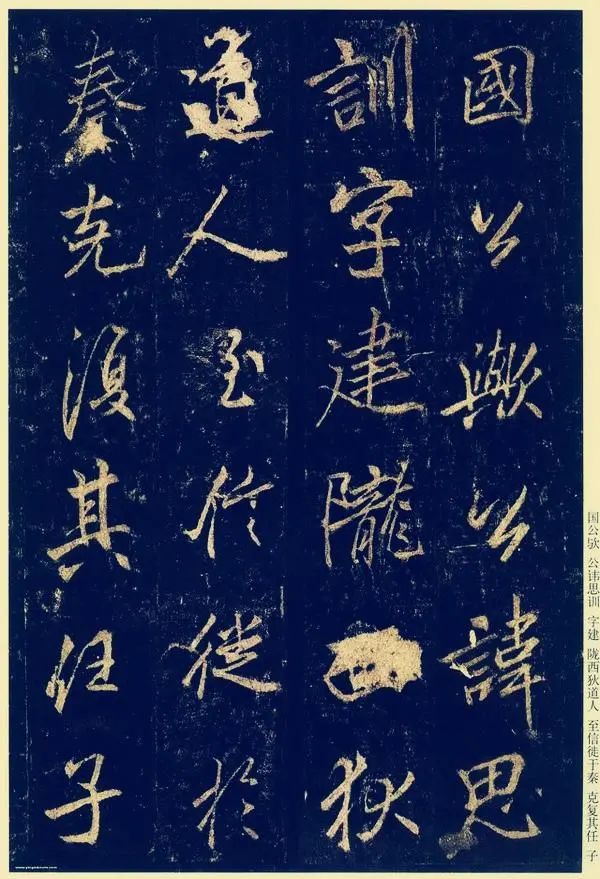 國公歟公諱思
訓字建隴西狄
道人至信徙於
秦克復其任子
国公欤 公讳思训 字建 陇西狄道人 至信徙于秦 克复其任 子